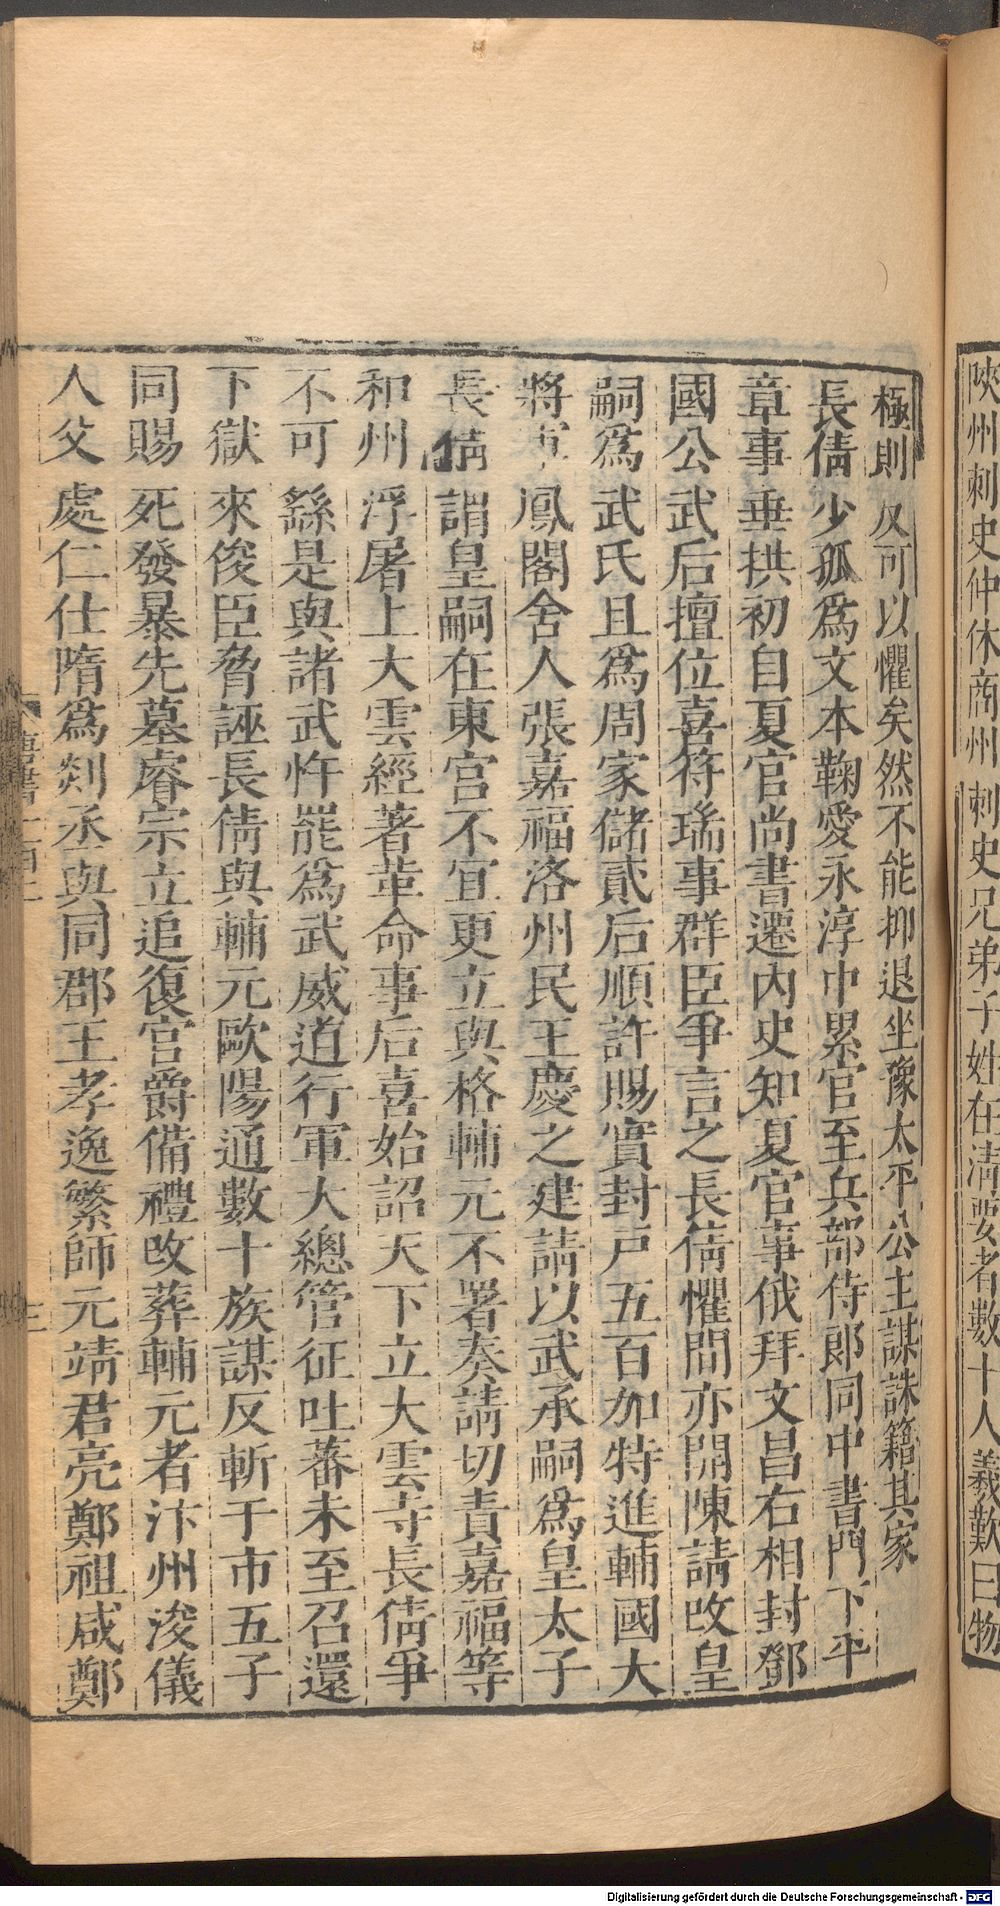 陝州刺史仲休商州刺史兄弟子姪在清要者數十人羲歎曰物
極則反可以懼矣然不能抑退坐豫太平公主謀誅籍其家
長倩少孤爲文本鞠愛永淳中累官至兵部侍郎同中書門下平
章事垂拱初自夏官尚書遷内史知夏官事俄拜文昌右相封鄧
國公武后擅位喜符瑞事群臣爭言之長倩懼間亦開陳請改皇
嗣爲武氏且爲周家儲貳后順許賜實封戸五百加特進輔國大
將軍鳳閣舍人張嘉福洛州民王慶之建請以武承嗣爲皇太子
長倩謂皇嗣在東宫不宜更立與格輔元不署奏請切責嘉福等
和州浮屠上大雲經著革命事后喜始詔天下立大雲寺長倩爭
不可繇是與諸武忤罷爲武威道行軍大總管征吐蕃未至召還
下獄來俊臣脅誣長倩與輔元歐陽通數十族謀反斬于市五子
同賜死發暴先墓睿宗立追復官爵備禮改葬輔元者汴州浚儀
人父處仁仕隋爲剡丞與同郡王孝逸繁師元靖君亮鄭祖咸鄭
三
Digitalisierung gefördert durch die Deutsche Forschungsgemeinschaft - DFG